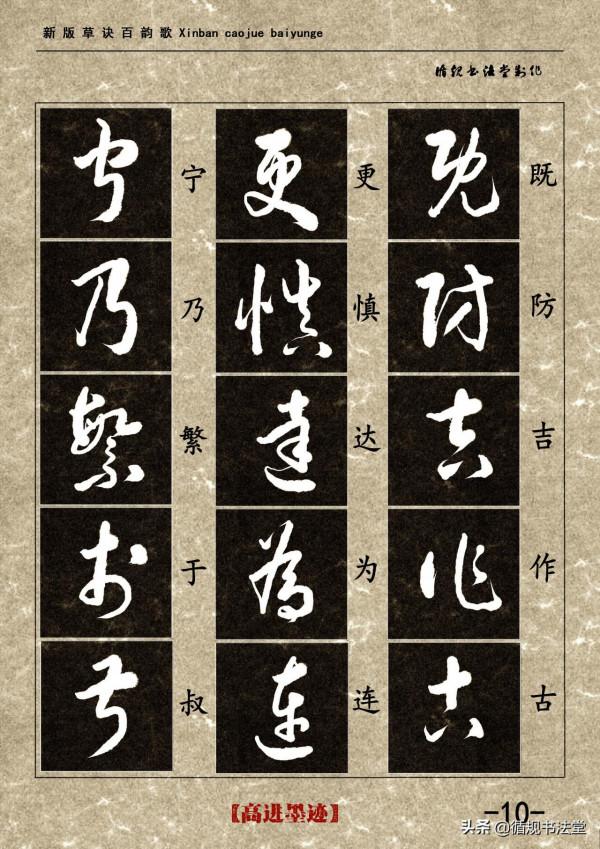 新版草诀百韵歌 Xinban caojue baiyunge
循规书法堂制作
既防吉作古
既防吉作古
更慎達為連
更慎达为连
宁乃繁于叔
宁乃繁于叔
【高进墨迹】
-10-
头条 @循规书法堂